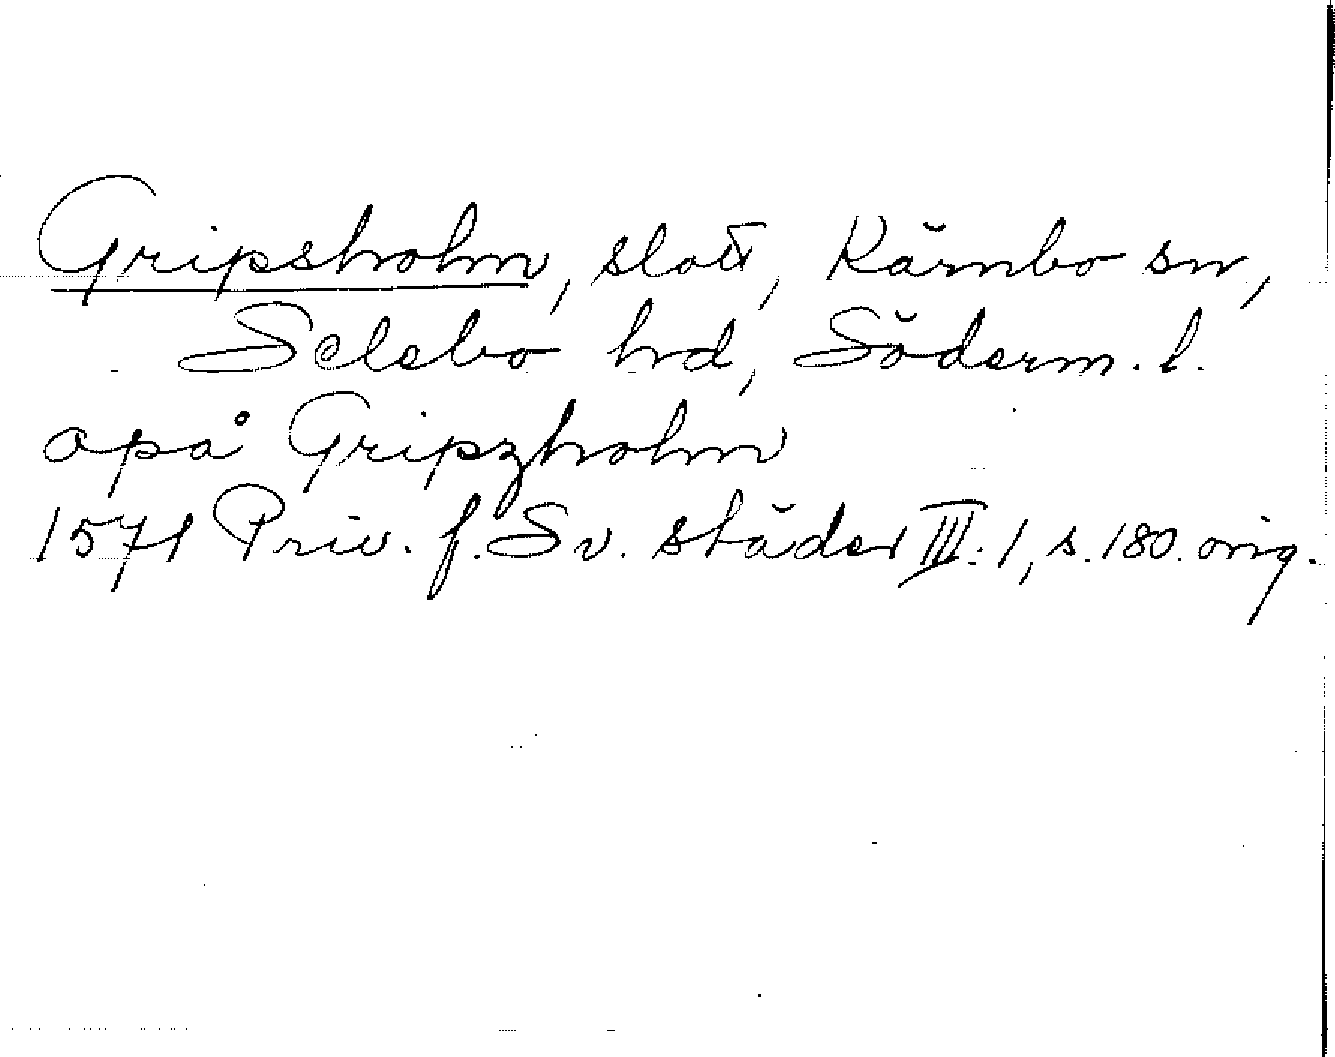 Gripsholm, slott, Kärnbo sn,
Selebo hd, Söderm. l.
opå Gripzholm
1571 Priv. f. Sv. städer III:1, s. 180. orig.